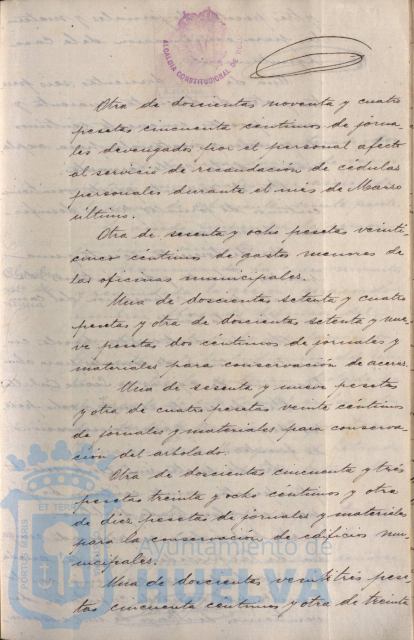 ALCALDIA CONSTITUCIONAL DE
Otra de doscientas noventa y cuatro
pesetas cincuenta céntimos de jorna-
les devengados por el personal afecto
al servicio de recaudación de cédulas
personales durante el mes de Marzo
último.
Otra de sesenta y ocho pesetas veinti
cinco céntimos de gastos menores de
las oficinas municipales.
Una de doscientas setenta y cuatro
pesetas y otra de doscientas setenta y nue-
ve pesetas dos céntimos de jornales y
materiales para conservación de aceras.
Una de sesenta y nueve pesetas
y otra de cuatro pesetas veinte céntimos
de jornales y materiales para conserva-
ción del arbolado.
Otra de doscientas cincuenta y tres
pesetas treinta y ocho céntimos y otra
de diez pesetas de jornales y materiales
para la conservación de edificios mu-
nicipales.
Una de doscientas veintitrés pese
tas cincuenta centimos y otra de treinta
PORTUS MARIS ET TERRAE
Ayuntamiento de
HUELVA